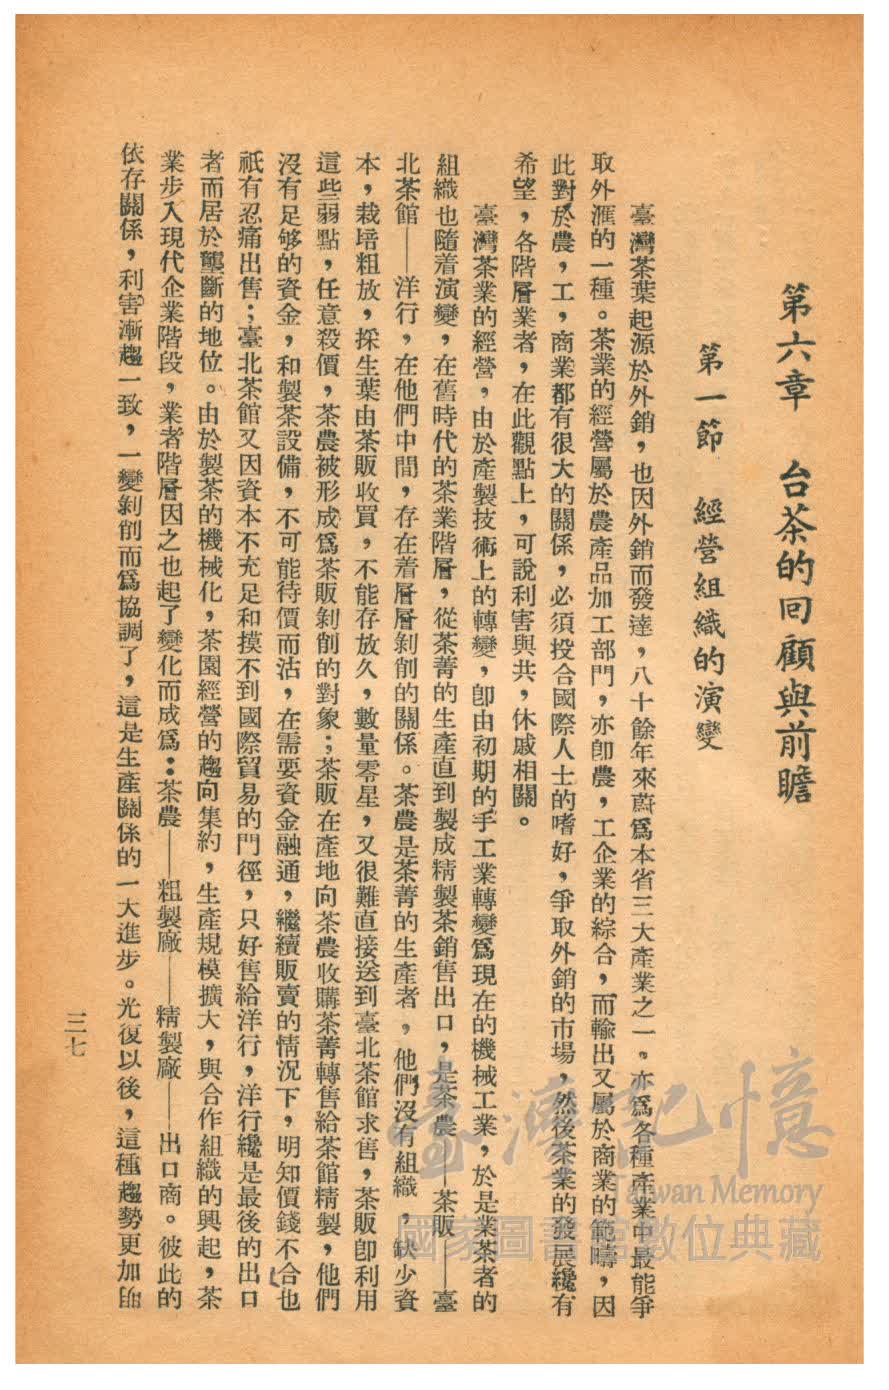 第六章　台茶的回顧與前瞻
第一節　經營組織的演變
臺灣茶葉起源於外銷，也因外銷而發達，八十餘年來蔚爲本省三大產業之一。亦爲各種產業中最能爭
取外滙的一種。茶業的經營屬於農產品加工部門，亦卽農，工企業的綜合，而輸出又屬於商業的範疇，因
此對於農，工，商業都有很大的關係，必須投合國際人士的嗜好，爭取外銷的市場，然後茶業的發展纔有
希望，各階層業者，在此觀點上，可說利害與共，休戚相關。
臺灣茶業的經營，由於產製技術上的轉變，卽由初期的手工業轉變爲現在的機械工業，於是業茶者的
組織也隨着演變，在舊時代的茶業階層，從茶菁的生產直到製成精製茶銷售出口，是茶農——茶販——臺
北茶館——洋行，在他們中間，存在着層層剝削的關係。茶農是茶菁的生產者，他們沒有組織，缺少資
本，栽培粗放，採生葉由茶販收買，不能存放久，數量零星，又很難直接送到臺北茶館求售，茶販卽利用
這些弱點，任意殺價，茶農被形成爲茶販剝削的對象；茶販在產地向茶農收購茶菁轉售給茶館精製，他們
沒有足够的資金，和製茶設備，不可能待價而沽，在需要資金融通，繼續販賣的情況下，明知價錢不合也
祇有忍痛出售；臺北茶館又因資本不充足和摸不到國際貿易的門徑，只好售給洋行，洋行纔是最後的出口
者而居於壟斷的地位。由於製茶的機械化，茶園經營的趨向集約，生產規模擴大，與合作組織的興起，茶
業步入現代企業階段，業者階層因之也起了變化而成爲：茶農——粗製廠——精製廠——出口商。彼此的
依存關係，利害漸趨一致，一變剝削而爲協調了，這是生產關係的一大進步。光復以後，這種趨勢更加
三七
臺灣記憶
Taiwan Memory
國家圖書館數位典藏